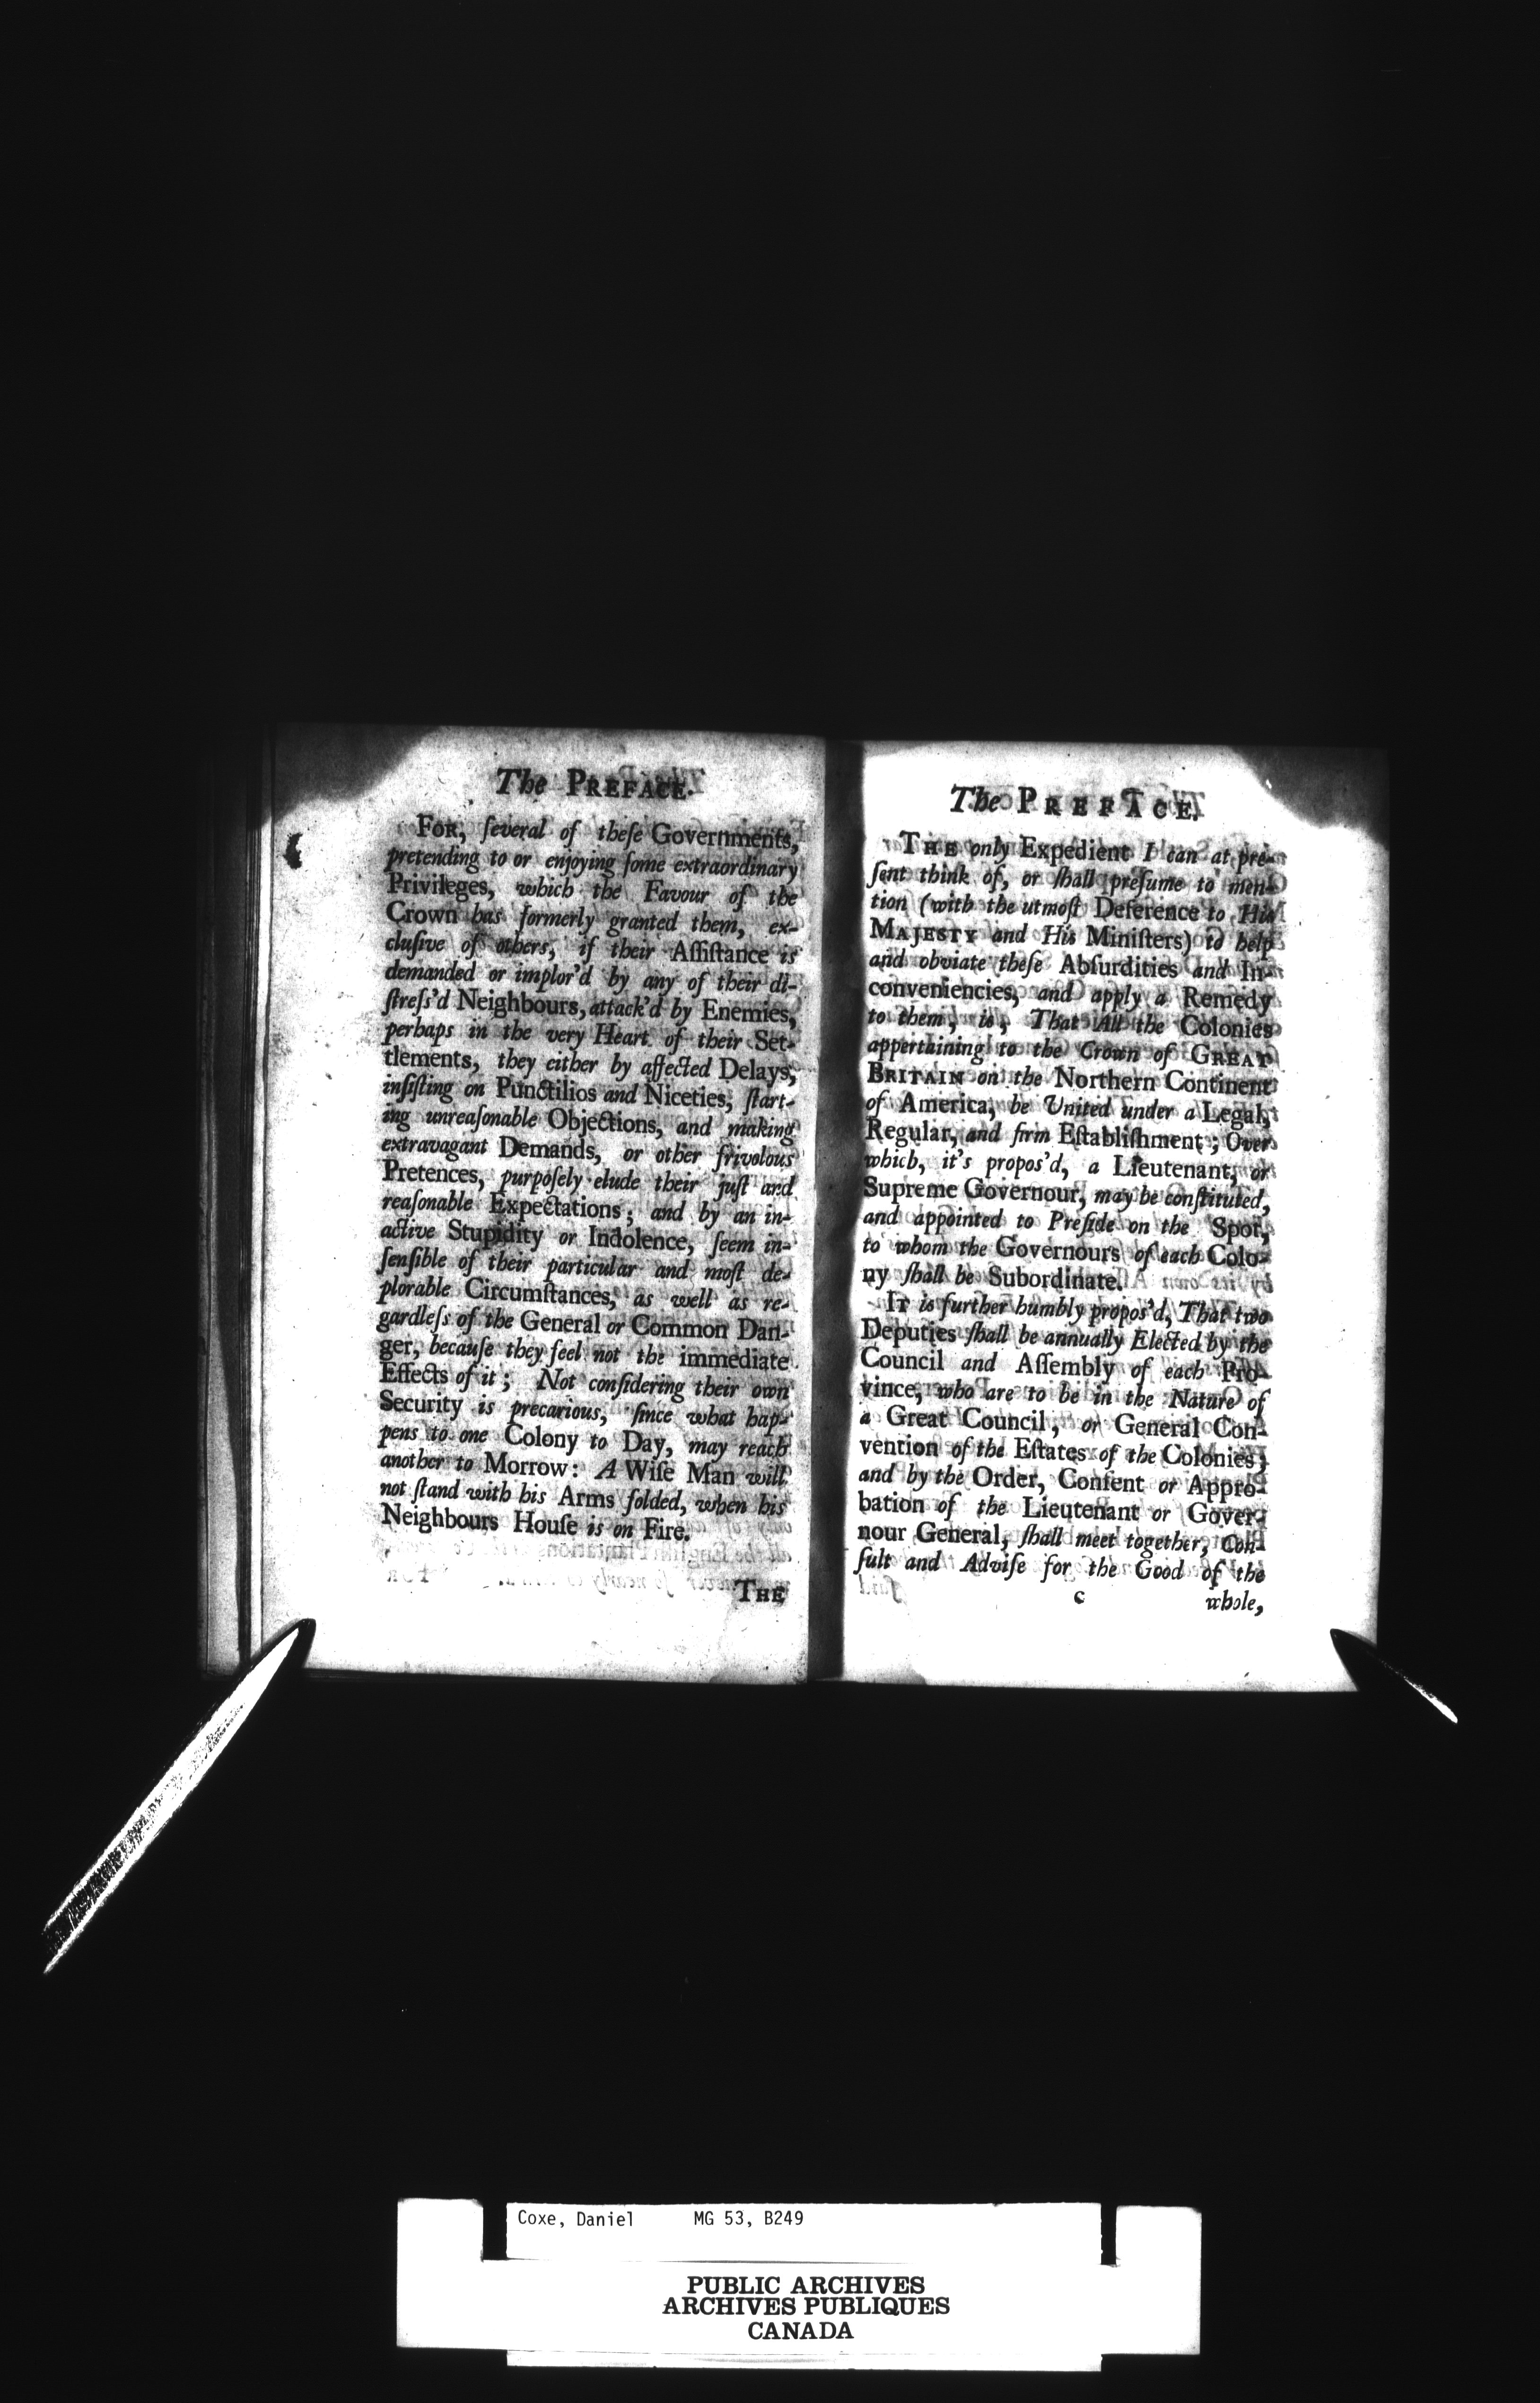 The PREFACE.
FOR, ſeveral of theſe Governments,
pretending to or enjoying ſome extraordinary
Privileges, which the Favour of the
Crown has formerly granted them, ex-
cluſive of others, if their Aſſiſtance is
demanded or implor'd by any of their di-
ſtreſs'd Neighbours, attack'd by Enemies,
perhaps in the very Heart of their Set-
tlements, they either by affected Delays,
inſiſting on Punctilios and Niceties, ſtart-
ing unreaſonable Objections, and making
extravagant Demands, or other frivolous
Pretences, purpoſely elude their juſt and
reaſonable Expectations; and by an in-
active Stupidity or Indolence, ſeem in-
ſenſible of their particular and moſt de-
plorable Circumſtances, as well as re-
gardleſs of the General or Common Dan-
ger, becauſe they feel not the immediate
Effects of it; Not conſidering their own
Security is precarious, ſince what hap-
pens to one Colony to Day, may reach
another to Morrow: A Wiſe Man will
not ſtand with his Arms folded, when his
Neighbours Houſe is on Fire.
THE
The PREFACE.
THE only Expedient I can at pre-
ſent think of, or ſhall preſume to men-
tion (with the utmoſt Deference to His
MAJESTY and His Miniſters) to help
and obviate theſe Abſurdities and In-
conveniencies, and apply a Remedy
to them, is, That All the Colonies
appertaining to the Crown of GREAT
BRITAIN on the Northern Continent
of America, be United under a Legal,
Regular, and firm Eſtabliſhment; Over
which, it's propos'd, a Lieutenant, or
Supreme Governour, may be conſtituted,
and appointed to Preſide on the Spot,
to whom the Governours of each Colo-
ny ſhall be Subordinate.
IT is further humbly propos'd, That two
Deputies ſhall be annually Elected by the
Council and Aſſembly of each Pro-
vince, who are to be in the Nature of
a Great Council, or General Con-
vention of the Eſtates of the Colonies;
and by the Order, Conſent or Appro-
bation of the Lieutenant or Gover-
nour General, ſhall meet together, Con-
ſult and Adviſe for the Good of the
c whole,
Coxe, Daniel MG 53, B249
PUBLIC ARCHIVES
ARCHIVES PUBLIQUES
CANADA